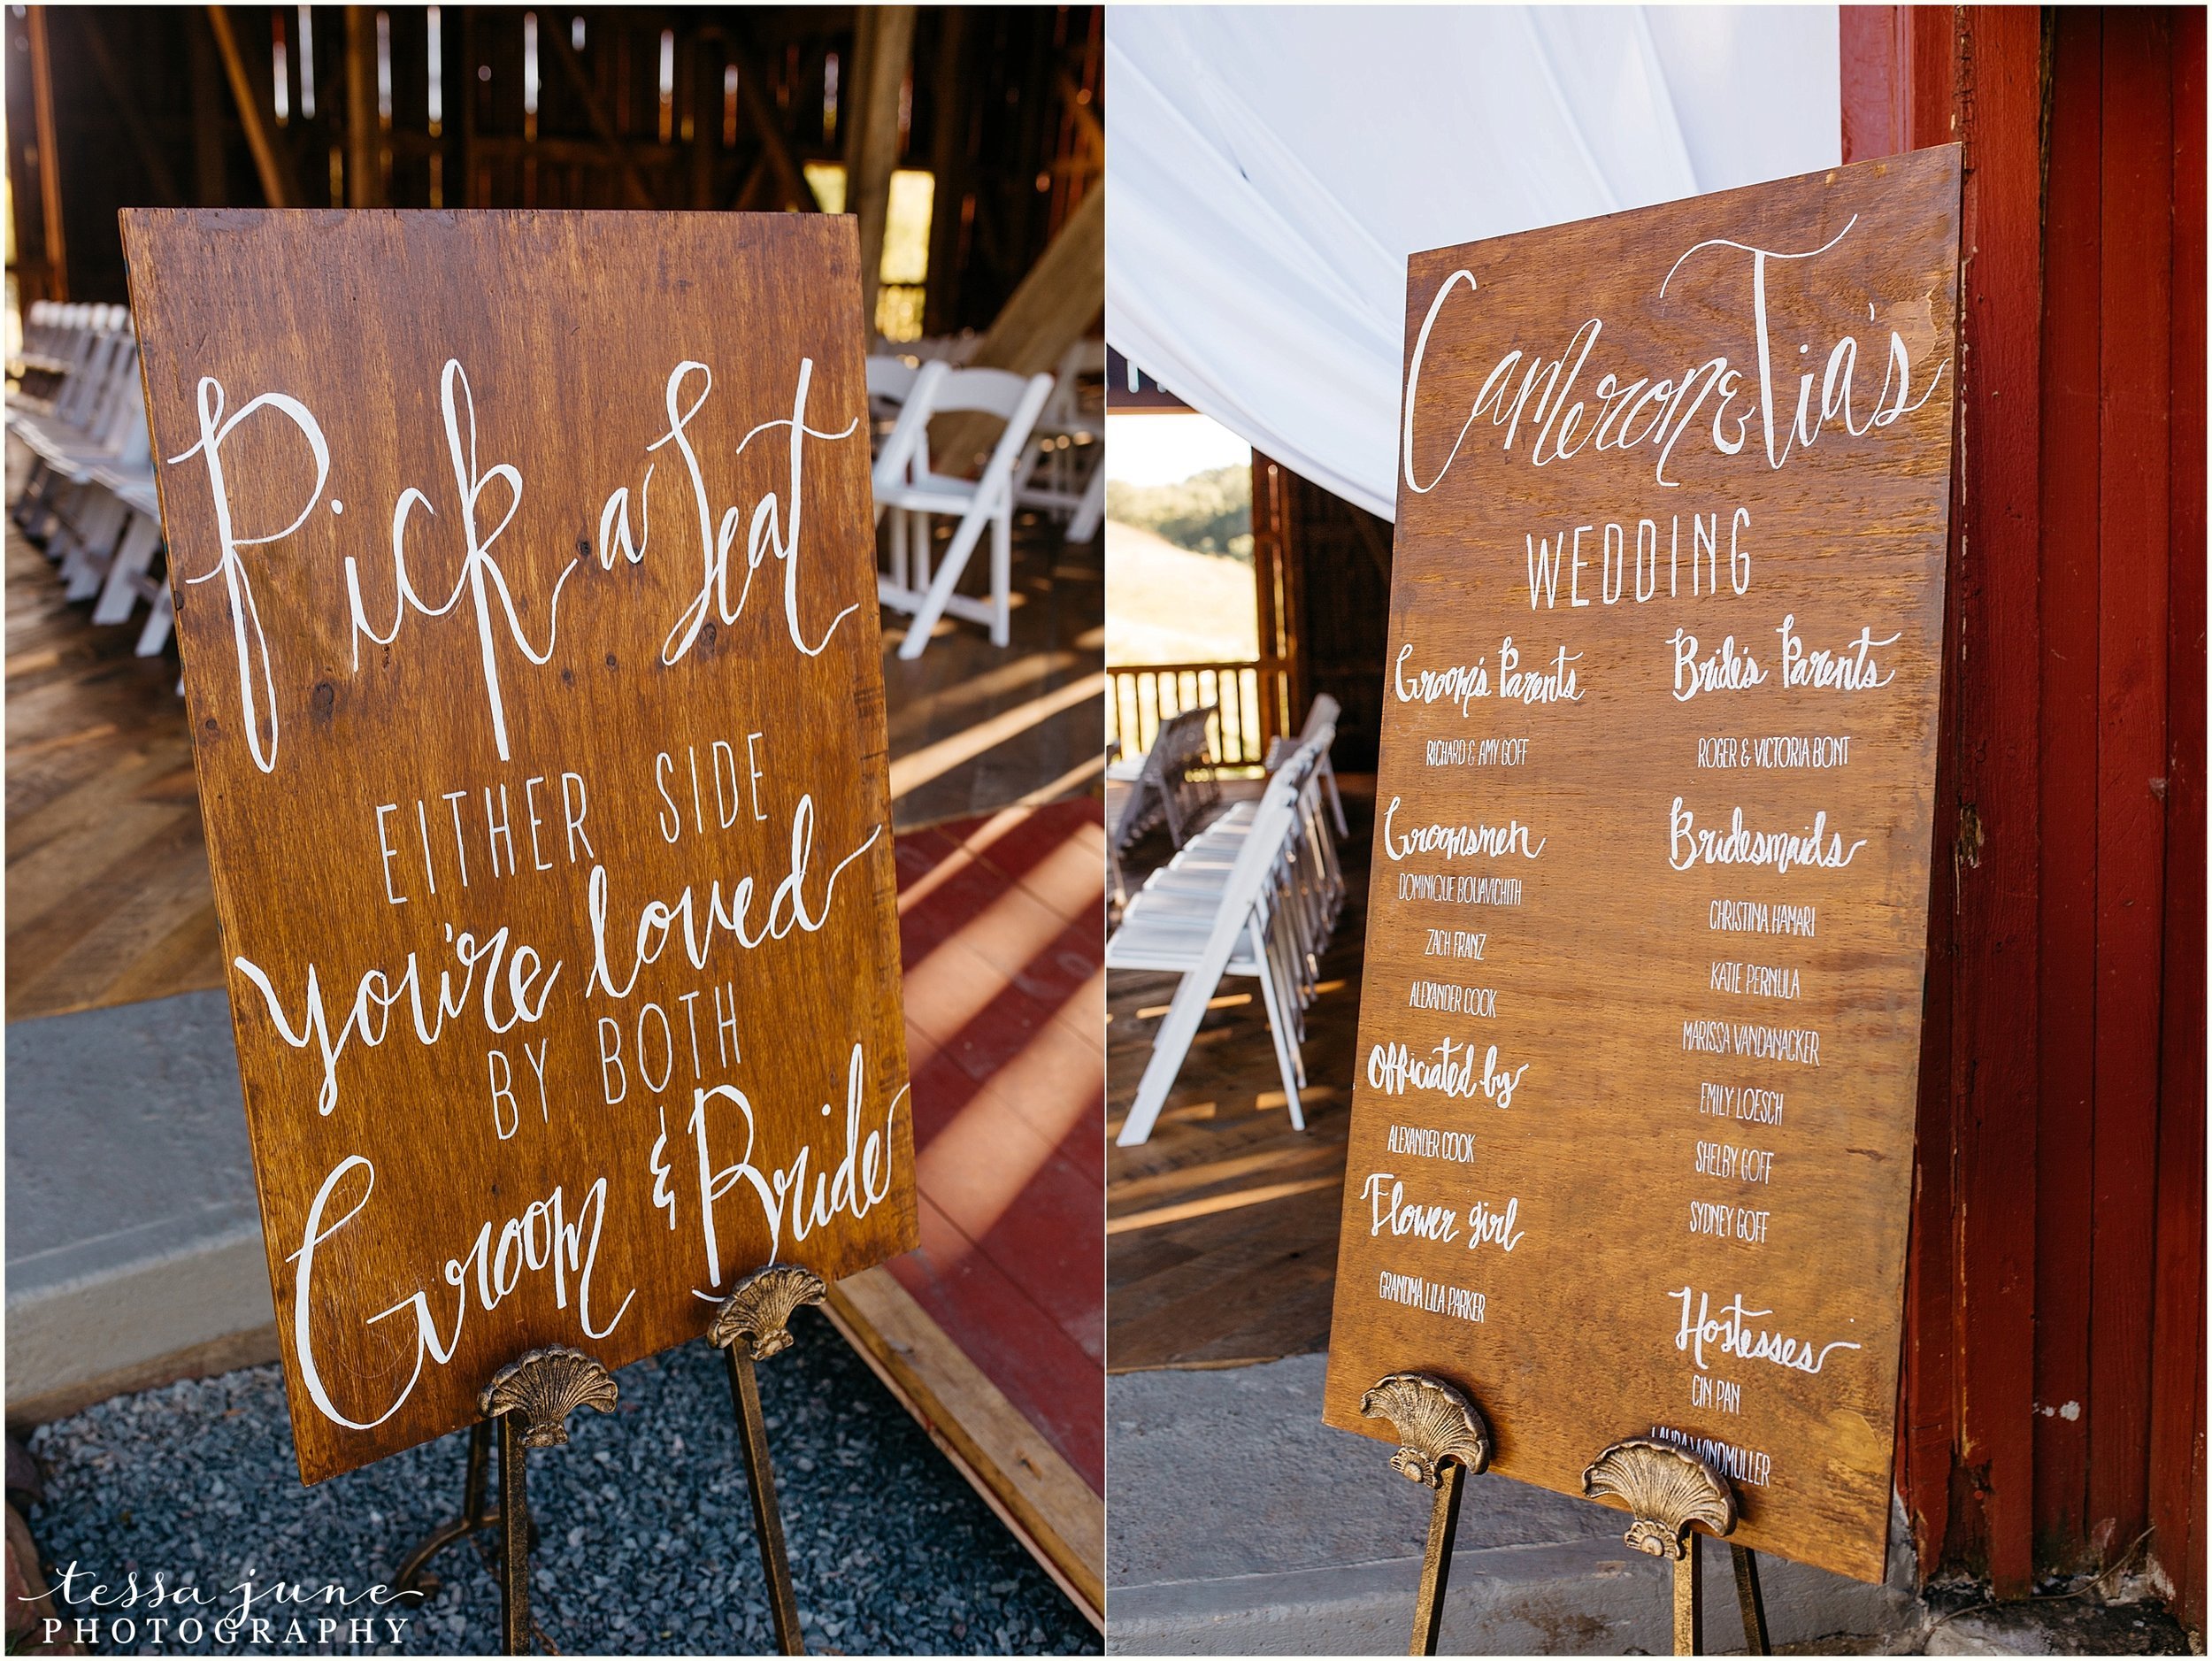 Pick a Seat
EITHER SIDE
you're loved
BY BOTH
Groom & Bride
Cameron & Tia's
WEDDING
Groom's Parents
RICHARD & AMY GOFF
Groomsmen
DOMINIQUE BOUAVICHITH
ZACH FRANZ
ALEXANDER COOK
Officiated by
ALEXANDER COOK
Flower girl
GRANDMA LILA PARKER
Bride's Parents
ROGER & VICTORIA BONT
Bridesmaids
CHRISTINA HAMARI
KATIE PERNULA
MARISSA VANDANACKER
EMILY LOESCH
SHELBY GOFF
SYDNEY GOFF
Hostesses
CIN PAN
LAURA WINDMULLER
tessa june
PHOTOGRAPHY